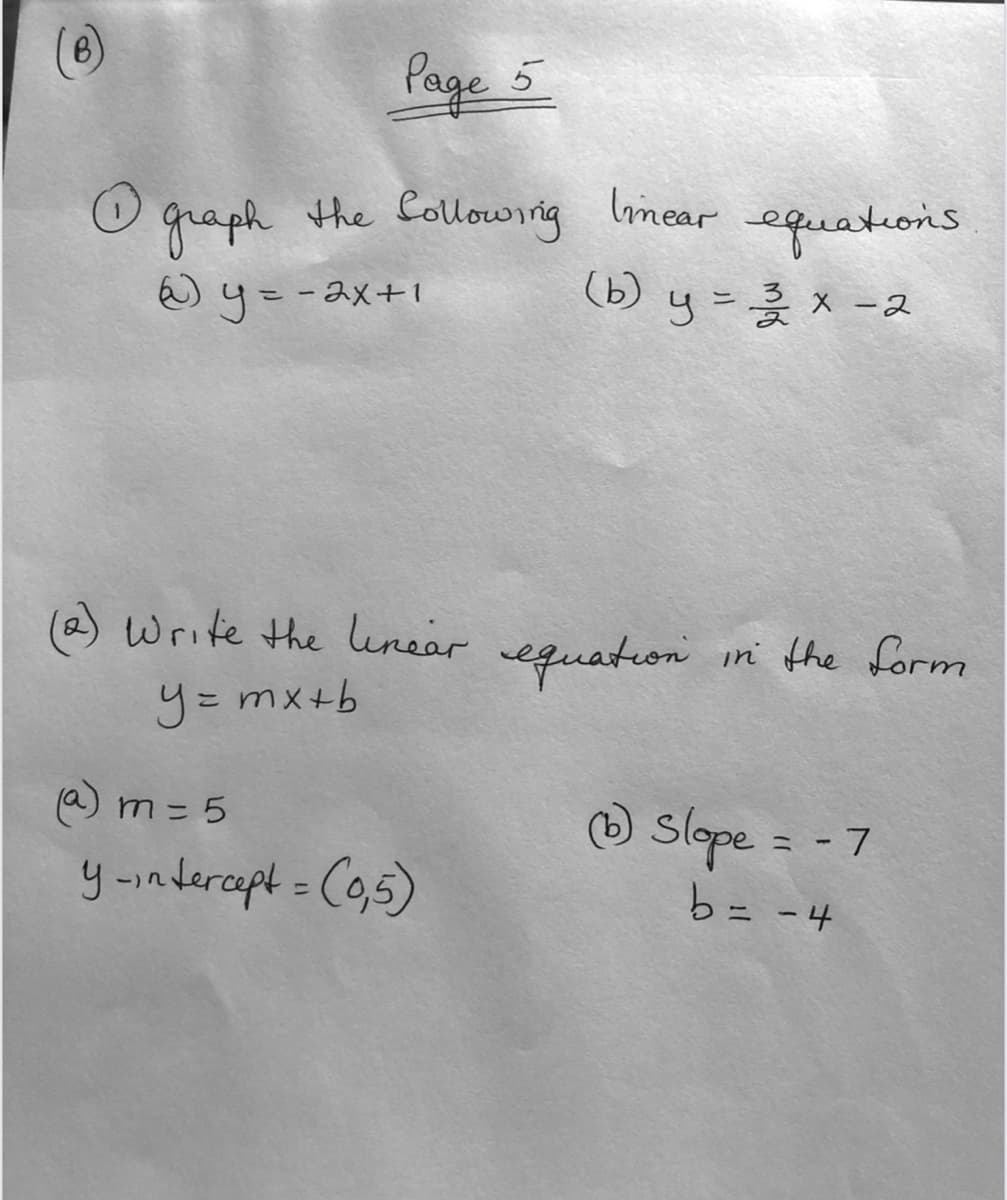 (B)
Page 5
① graph the following linear equations.
(a) y = -2x+1 (b) y = 3/2 x - 2
(2) Write the linear equation in the form
y = mx+b
(a) m = 5 (b) Slope = -7
y-intercept = (0,5) b = -4